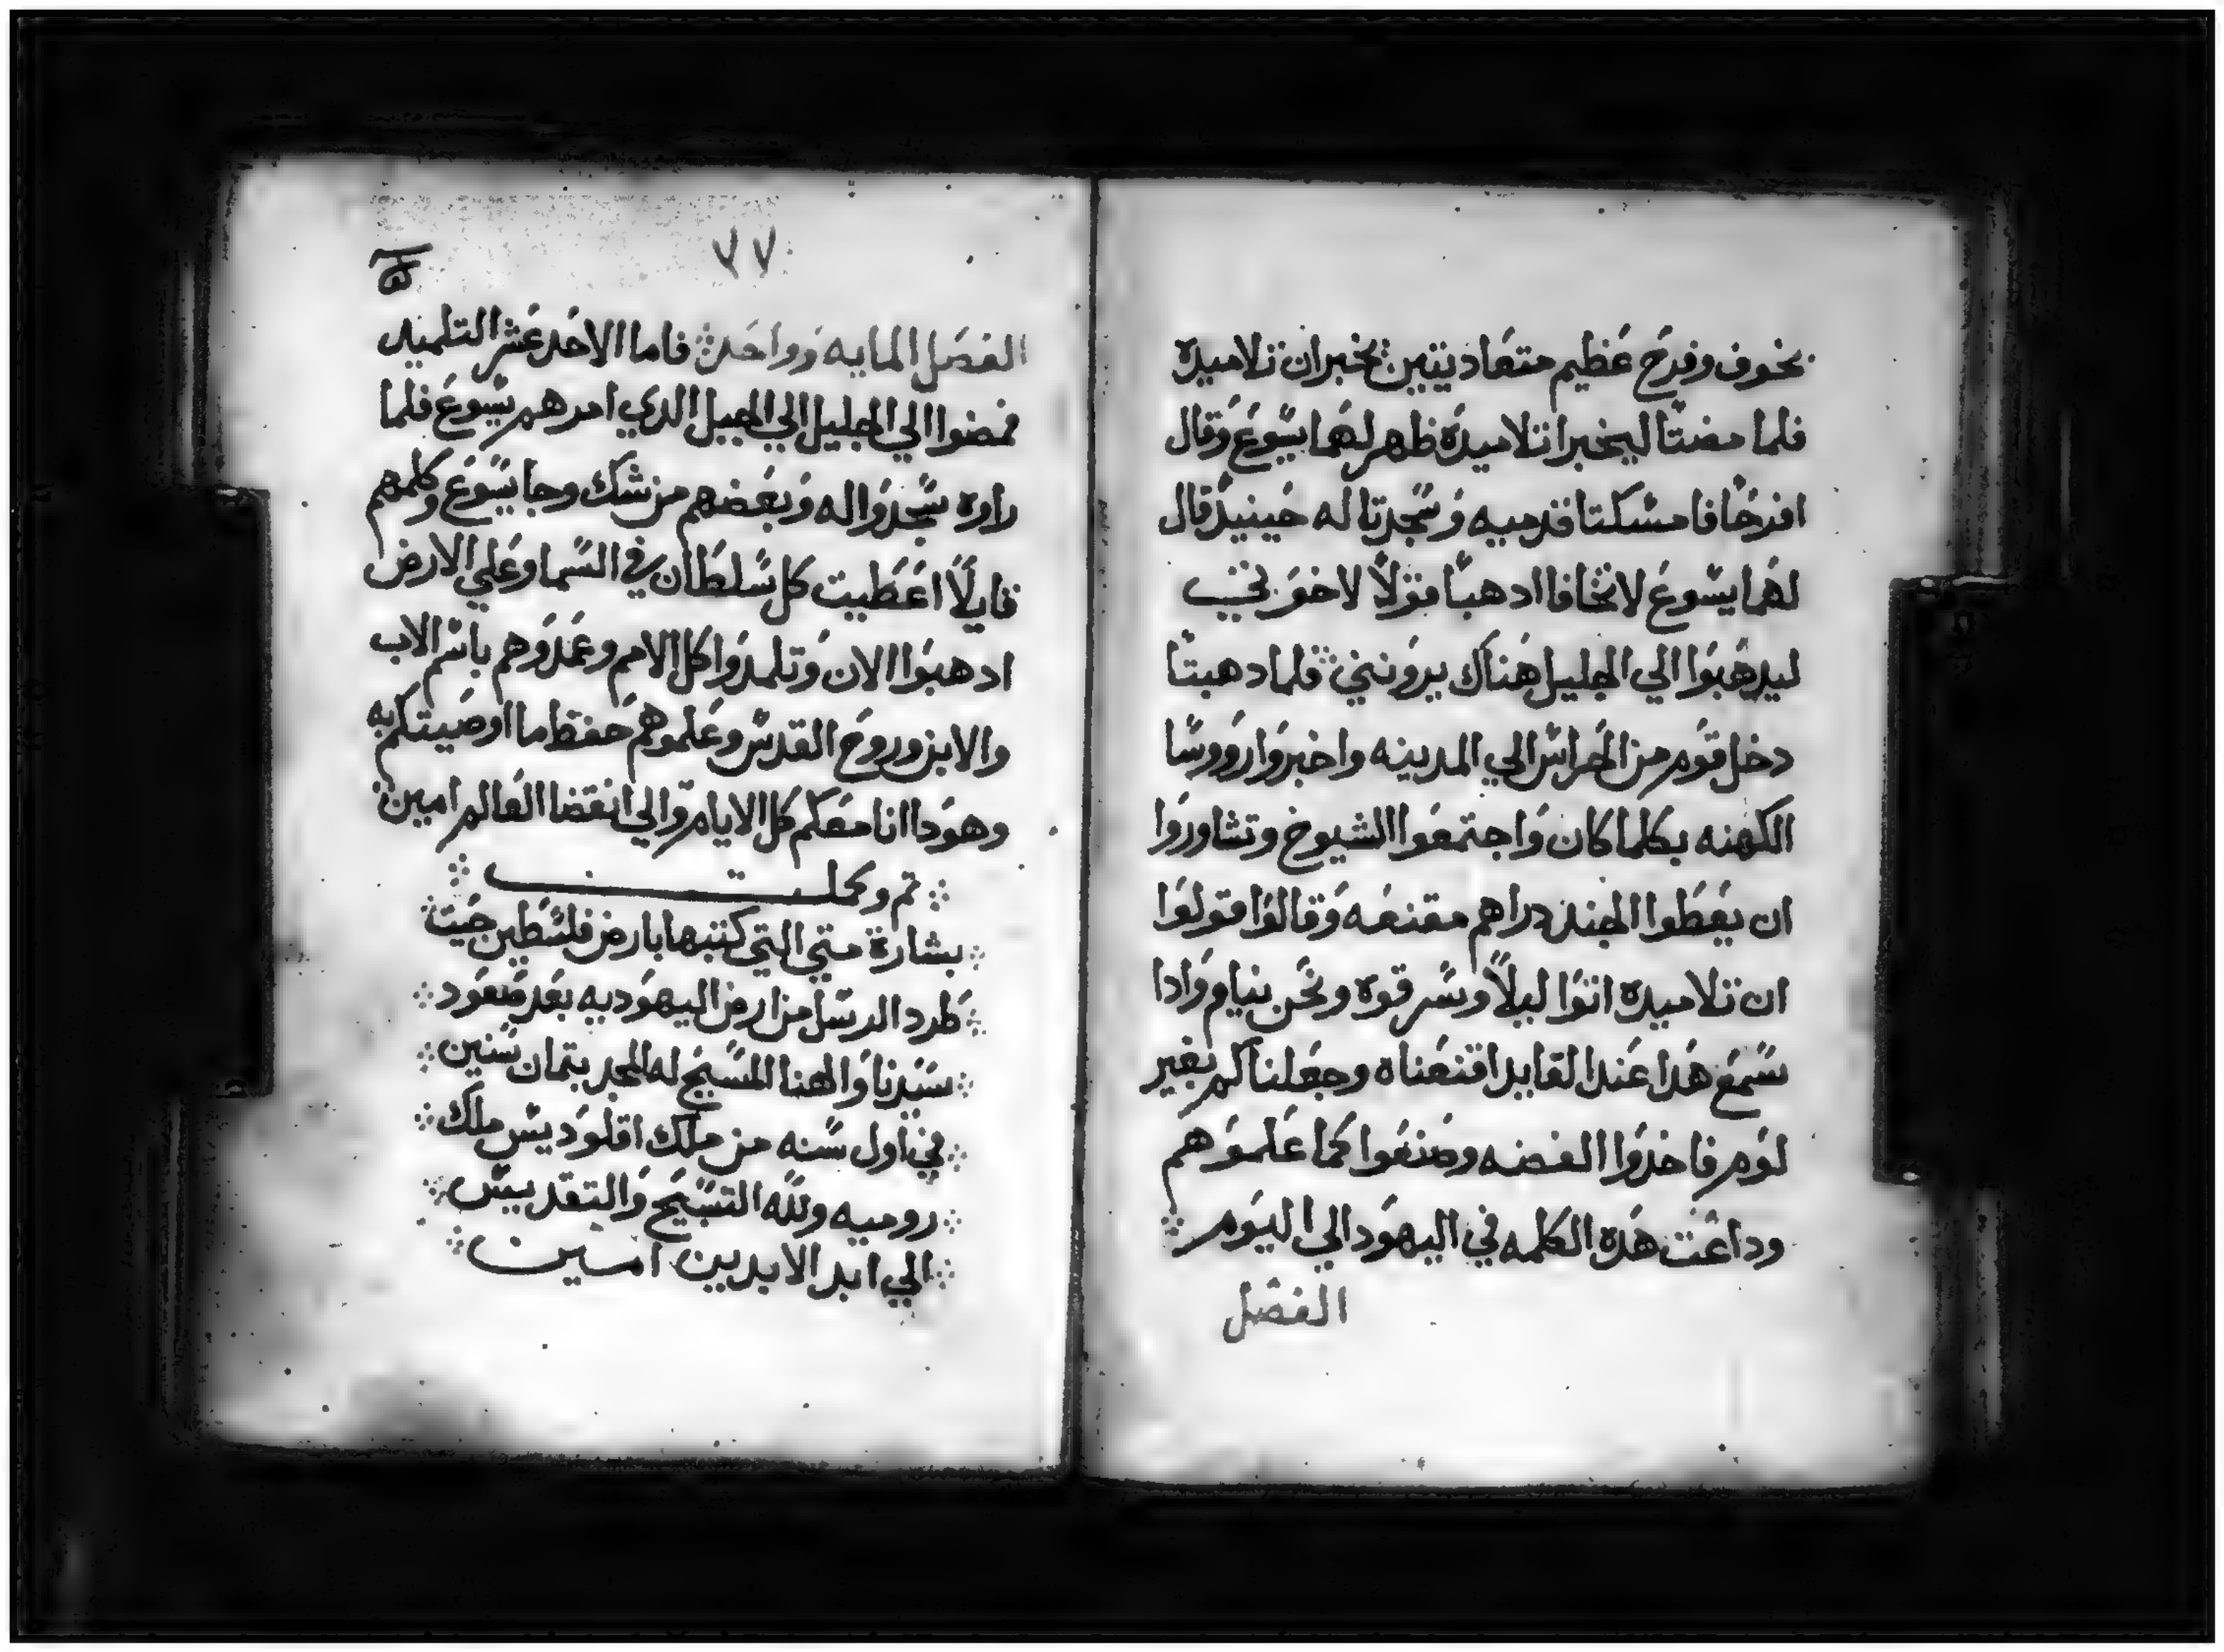 بخوف وفرح عظيم متعاديتين يخبران تلاميده
فلما مضتا ليخبرا تلاميده ظهر لهما يسوع وقال
افرحا فامسكتا قدميه وسجدتا له حينيد قال
لهما يسوع لا تخافا ادهبا قولا لاخوتي
ليدهبوا الي الجليل هناك يرونني فلما دهبتا
دخل قوم من الحراس الي المدينه واخبروا رووسا
الكهنه بكلما كان واجتمعوا الشيوخ وتشاوروا
ان يعطوا الجند دراهم مقنعه وقالوا قولوا
ان تلاميده اتوا ليلا وسرقوه ونحن نيام وادا
سمع هدا عند القايد اقنعناه وجعلناكم بغير
لوم فاخدوا الفضه وصنعوا كما علموهم
وداعت هده الكلمه في اليهود الي اليوم
الفصل
٧٧
الفصل المايه وواحد فاما الاحد عشر التلميد
فمضوا الي الجليل الي الجبل الدي امرهم يسوع فلما
راوه سجدوا له وبعضهم من شك وجا يسوع وكلمهم
قايلا اعطيت كل سلطان في السما وعلي الارض
ادهبوا الان وتلمدوا كل الامم وعمدوهم باسم الاب
والابن وروح القدس وعلموهم حفظ ما اوصيتكم به
وهودا انا معكم كل الايام والي انقضا العالم امين
تم وكملت
بشارة متي التي كتبها بارض فلسطين حيت
طرد الرسل من ارض اليهوديه بعد صعود
سيدنا والهنا المسيح له المجد بتمان سنين
في اول سنه من ملك اقلوديس ملك
روميه ولله التسبيح والتقديس
الي ابد الابدين امين